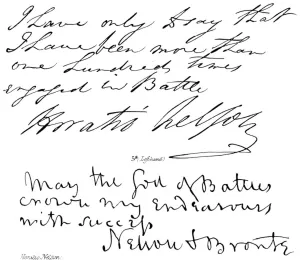 I have only to say that
I have been more than
one hundred times
engaged in Battle
Horatio Nelson
May the God of Battles
crown my Endeavours
with success
Nelson & Bronte
Horatio Nelson